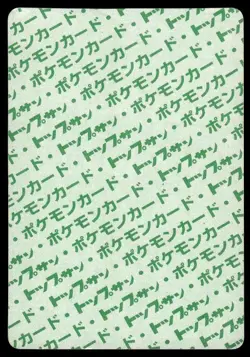 ポケモンカード・
トップサン・ポケモンカード・
ポケモンカード・トップサン・
トップサン・ポケモンカード・
ポケモンカード・トップサン・
トップサン・ポケモンカード・
ポケモンカード・トップサン・
トップサン・ポケモンカード・
ポケモンカード・トップサン・
トップサン・ポケモンカード・
ポケモンカード・トップサン・
ポケモンカード・
トップサン・